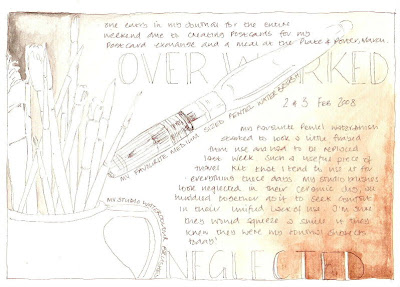 one entry in my journal for the entire
weekend due to creating postcards for my
postcard exchange and a meal at the Plate & Porter,
OVER WORKED
MY FAVOURITE MEDIUM SIZED PENTEL WATER BRUSH
2 & 3 Feb 2008
my favourite Pentel waterbrush
started to look a little frayed
from use and had to be replaced
last week. Such a useful piece of
travel kit that I tend to use it for
everything these days. My studio brushes
look neglected in their ceramic jug, all
huddled together as if to seek comfort
in their unified lack of use. I'm sure
they would squeeze a smile if they
knew they were my central subjects
today!
MY STUDIO WATERCOLOUR BRUSHES
NEGLECTED